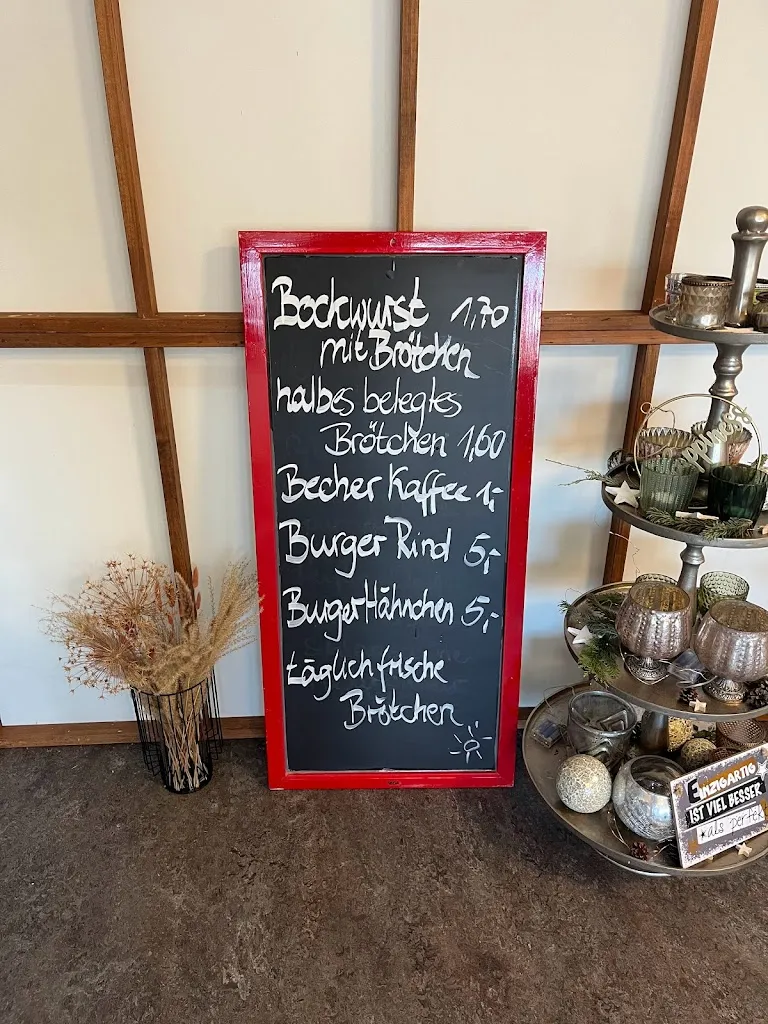 Bockwurst 1,70
mit Brötchen
halbes belegtes
Brötchen 1,60
Becher Kaffee 1,-
Burger Rind 5,-
Burger Hähnchen 5,-
täglich frische
Brötchen
Happiness
EINZIGARTIG
IST VIEL BESSER
als perfek